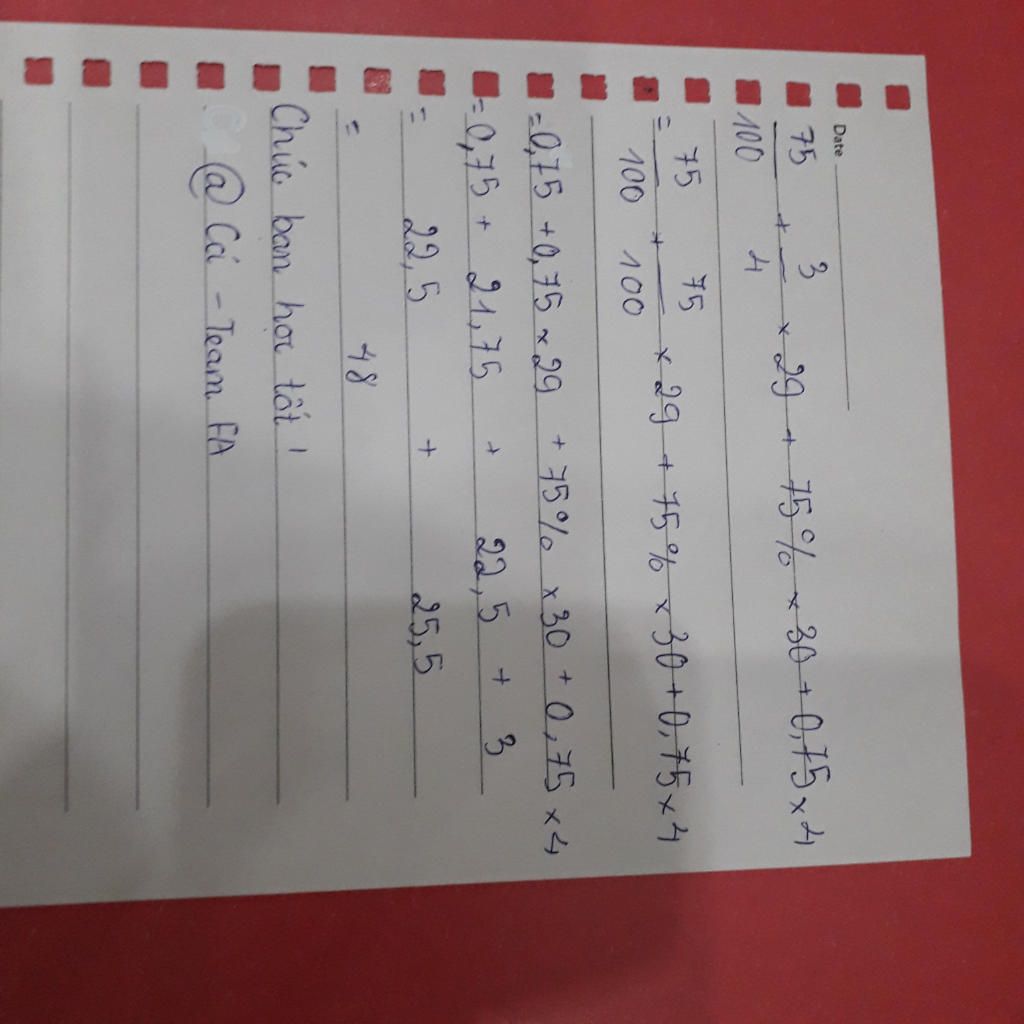 Date
75/100 + 3/4 × 29 + 75% × 30 + 0,75 × 4
= 75/100 + 75/100 × 29 + 75% × 30 + 0,75 × 4
= 0,75 + 0,75 × 29 + 75% × 30 + 0,75 × 4
= 0,75 + 21,75 + 22,5 + 3
= 22,5 + 25,5
= 48
Chúc bạn học tốt !
@ Cá - Team FA